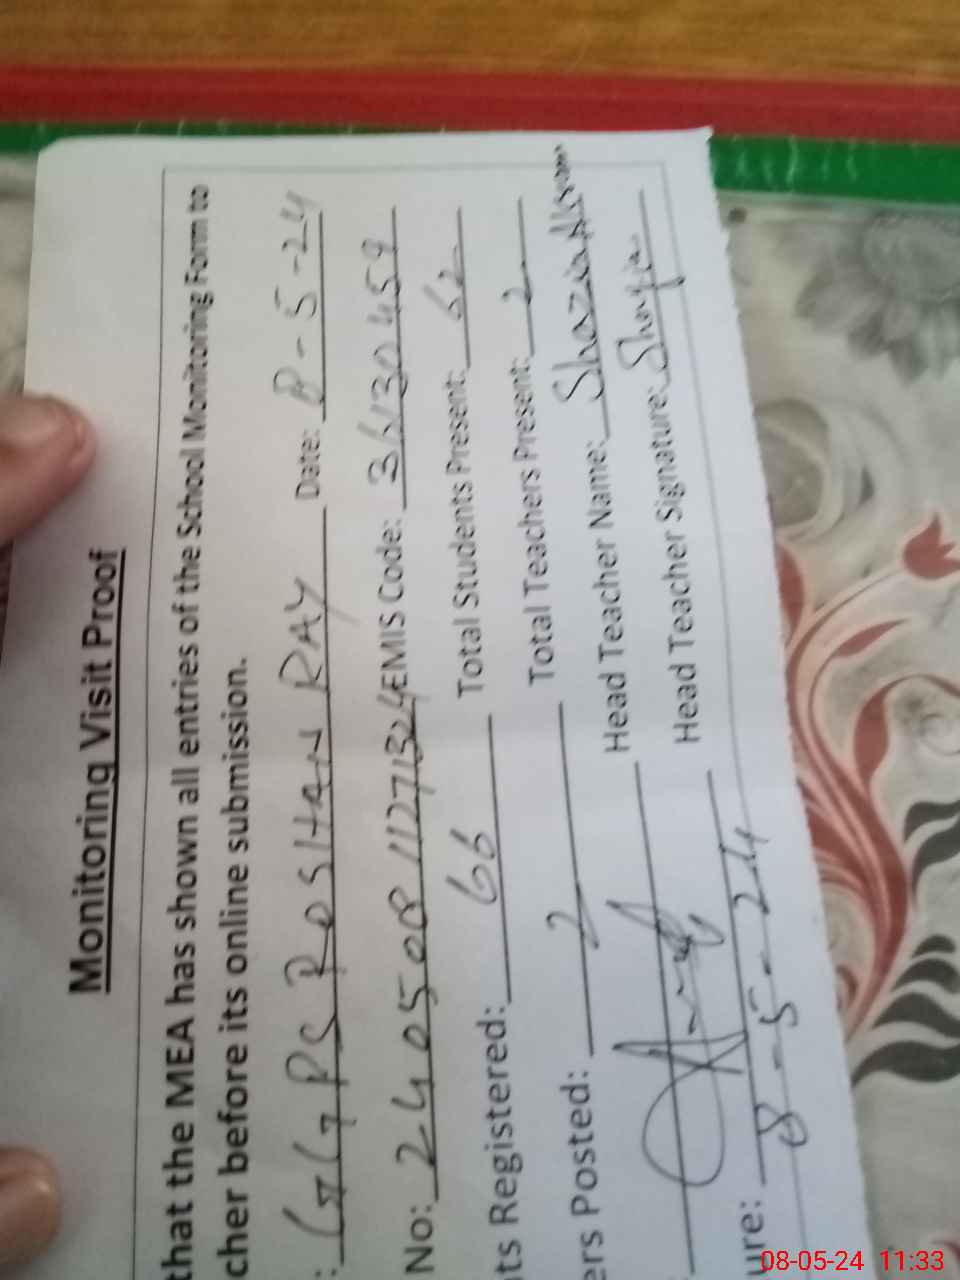 Monitoring Visit Proof
that the MEA has shown all entries of the School Monitoring Form to
cher before its online submission.
: GGPS ROSHAN RAY Date: 8-5-24
No: EMIS Code: 31130459
nts Registered: 66 Total Students Present: 62
ers Posted: 2 Total Teachers Present: 2
Head Teacher Name: Shazia Akram
ure: Head Teacher Signature: Shazia
8-5-24
08-05-24 11:33